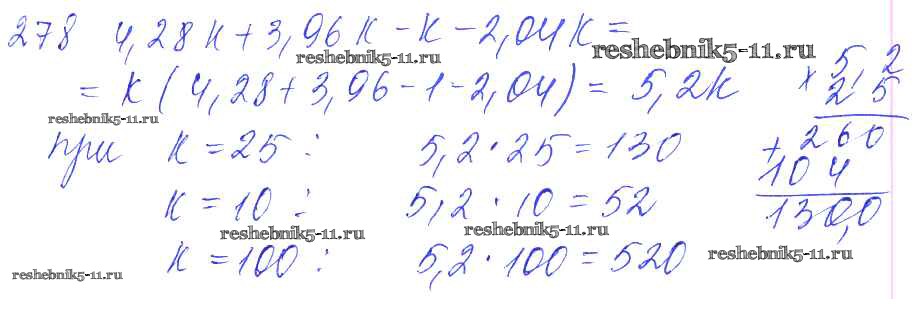 278 4,28к + 3,96к - к - 2,04к =
reshebnik5-11.ru reshebnik5-11.ru
= к (4,28 + 3,96 - 1 - 2,04) = 5,2к
reshebnik5-11.ru
при к = 25 : 5,2 · 25 = 130
к = 10 : 5,2 · 10 = 52
reshebnik5-11.ru reshebnik5-11.ru
к = 100 : 5,2 · 100 = 520
reshebnik5-11.ru reshebnik5-11.ru
× 5,2
25
+ 260
104
130,0